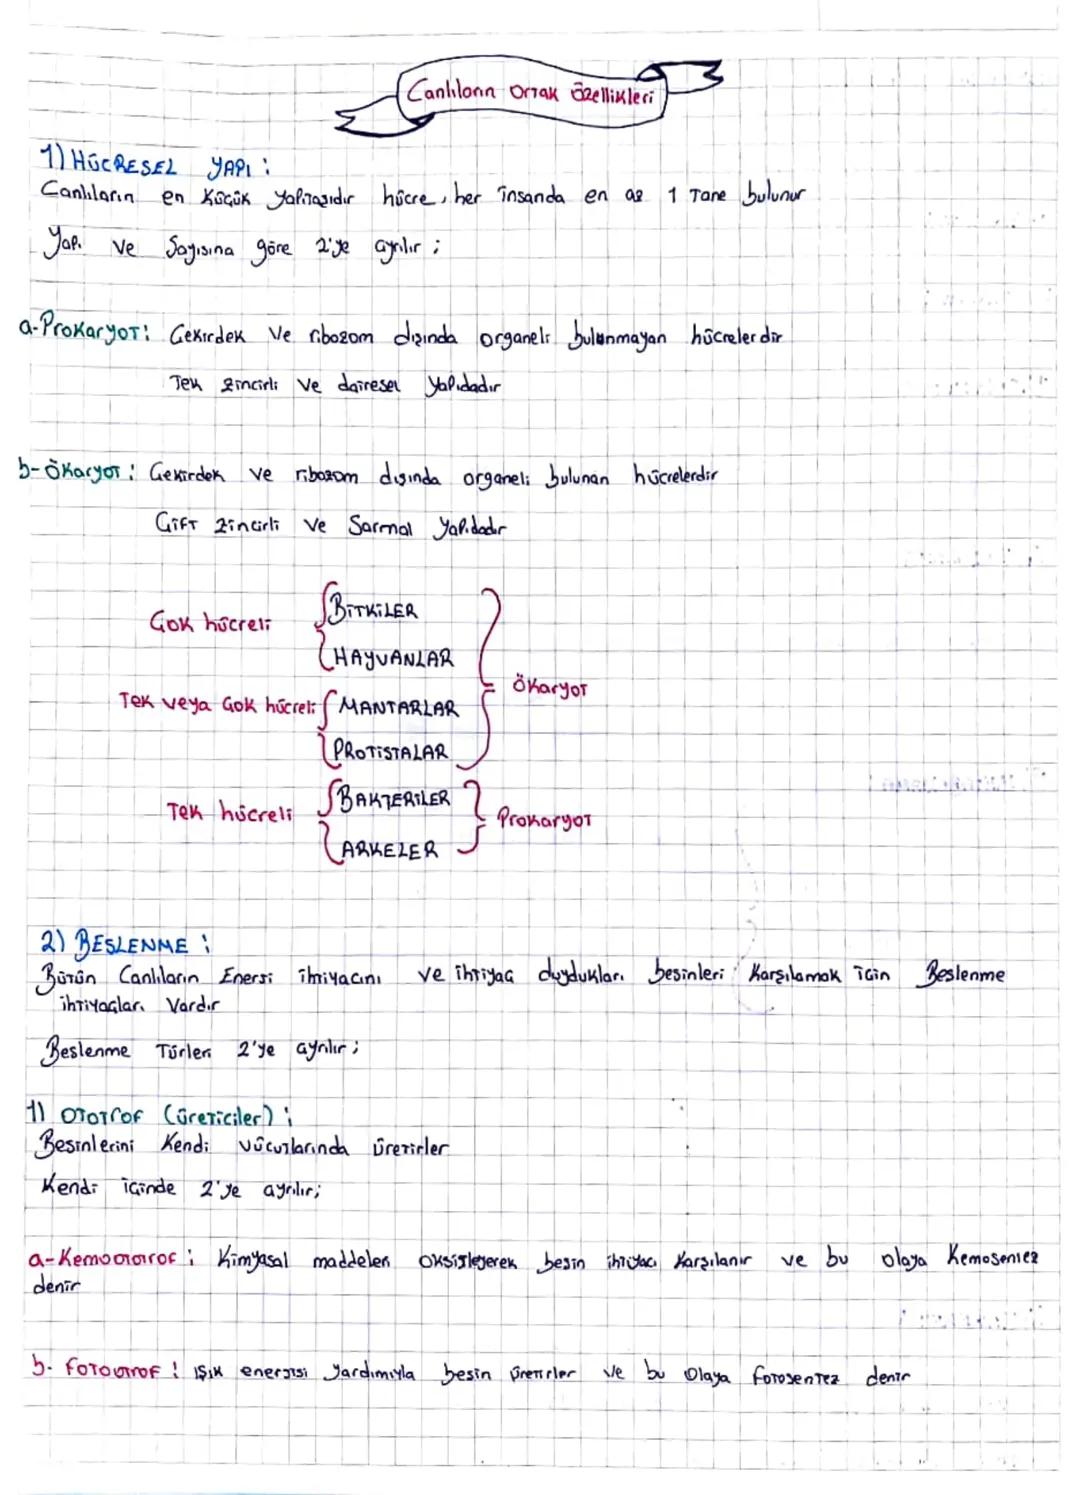 Canlıların Ortak Özellikleri
1) HÜCRESEL YAPI :
Canlıların en Küçük Yapıtaşıdır hücre, her insanda en az 1 Tane bulunur
Yapı ve Sayısına göre 2'ye ayrılır ;
a-Prokaryot: Çekirdek ve ribozom dışında organeli bulunmayan hücrelerdir
Tek zincirli ve dairesel yapıdadır
b-Ökaryot : Çekirdek ve ribozom dışında organeli bulunan hücrelerdir
Çift zincirli ve Sarmal Yapıdadır
Çok hücreli
BİTKİLER
HAYVANLAR
Ökaryot
Tek veya Çok hücreli
MANTARLAR
PROTİSTALAR
Tek hücreli
BAKTERİLER
Prokaryot
ARKELER
2) BESLENME :
Bütün Canlıların Enerji ihtiyacını ve ihtiyaç duydukları besinleri Karşılamak için Beslenme
ihtiyaçları Vardır
Beslenme Türleri 2'ye ayrılır ;
1) OTOTrof (üreticiler) ;
Besinlerini Kendi vücutlarında üretirler
Kendi içinde 2'ye ayrılır;
a-Kemoototrof : Kimyasal maddeleri oksitleyerek besin ihtiyacı Karşılanır ve bu olaya Kemosentez
denir
b- Fotoototrof : ışık enerjisi Yardımıyla besin üretirler ve bu Olaya fotosentez denir